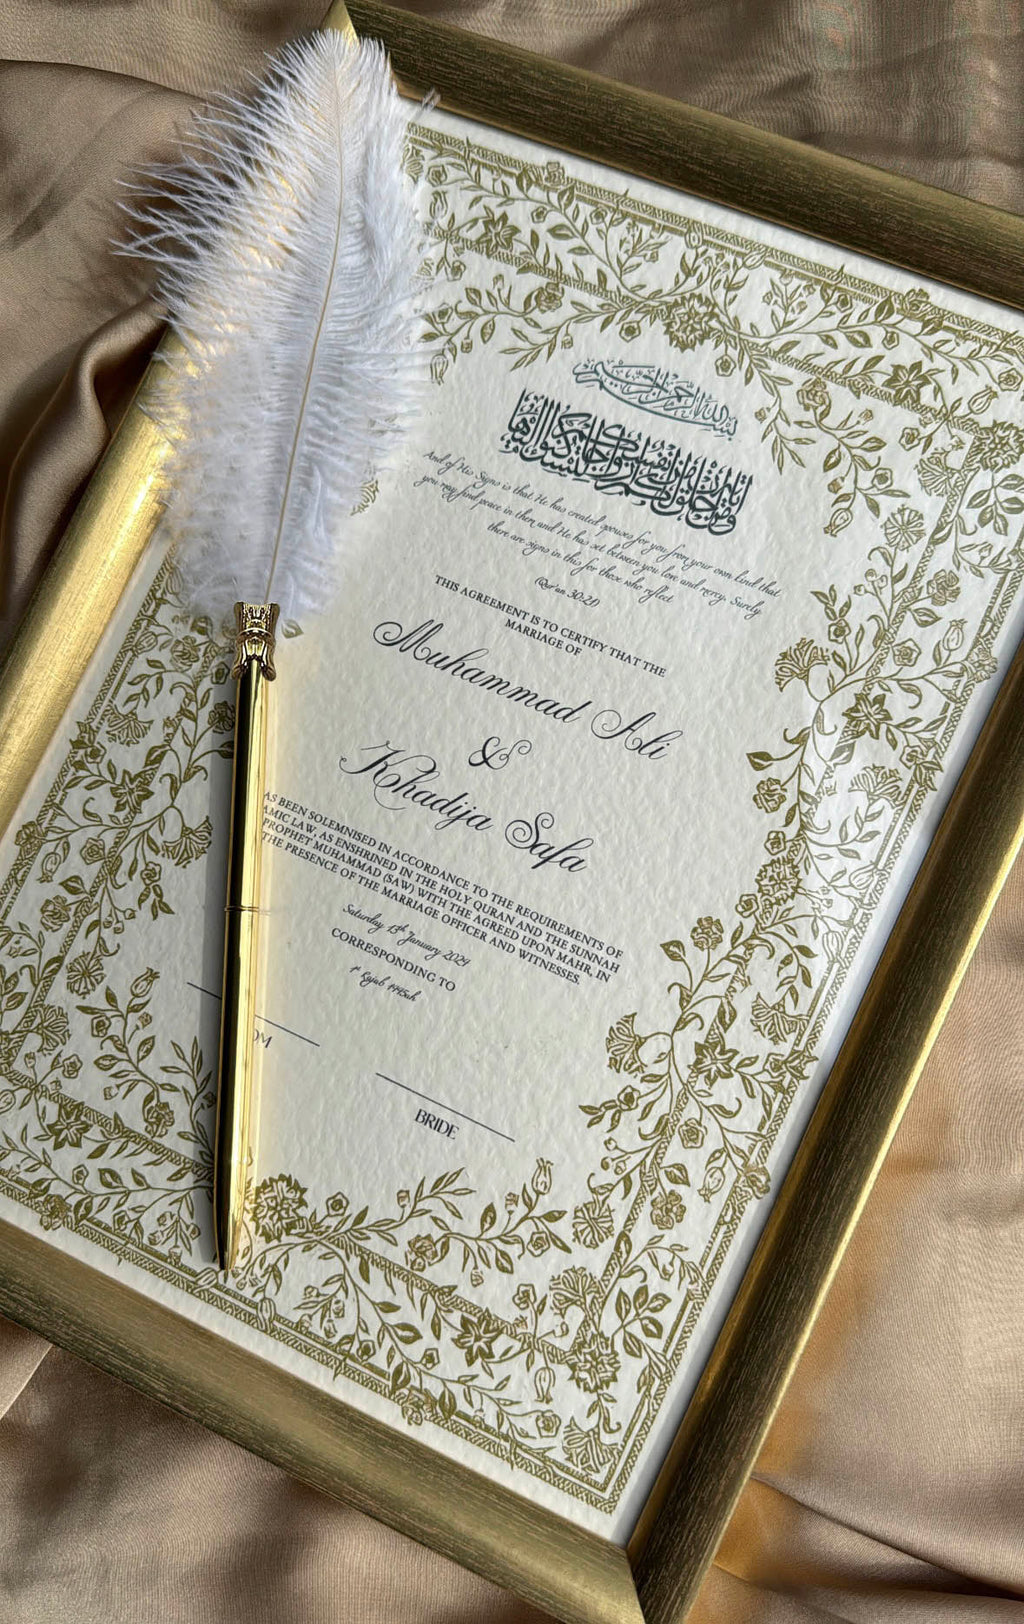 بسم الله الرحمن الرحيم
ومن آياته أن خلق لكم من أنفسكم أزواجا لتسكنوا إليها
And of His Signs is that He has created spouses for you from your own kind that
you may find peace in them and He has set between you love and mercy. Surely
there are signs in this for those who reflect
(Qur'an 30:21)
THIS AGREEMENT IS TO CERTIFY THAT THE
MARRIAGE OF
Muhammad Ali
&
Khadija Safa
AS BEEN SOLEMNISED IN ACCORDANCE TO THE REQUIREMENTS OF
AMIC LAW, AS ENSHRINED IN THE HOLY QURAN AND THE SUNNAH
PROPHET MUHAMMAD (SAW) WITH THE AGREED UPON MAHR, IN
THE PRESENCE OF THE MARRIAGE OFFICER AND WITNESSES.
Saturday 13th January 2024
CORRESPONDING TO
1st Rajab 1445ah
OM
BRIDE